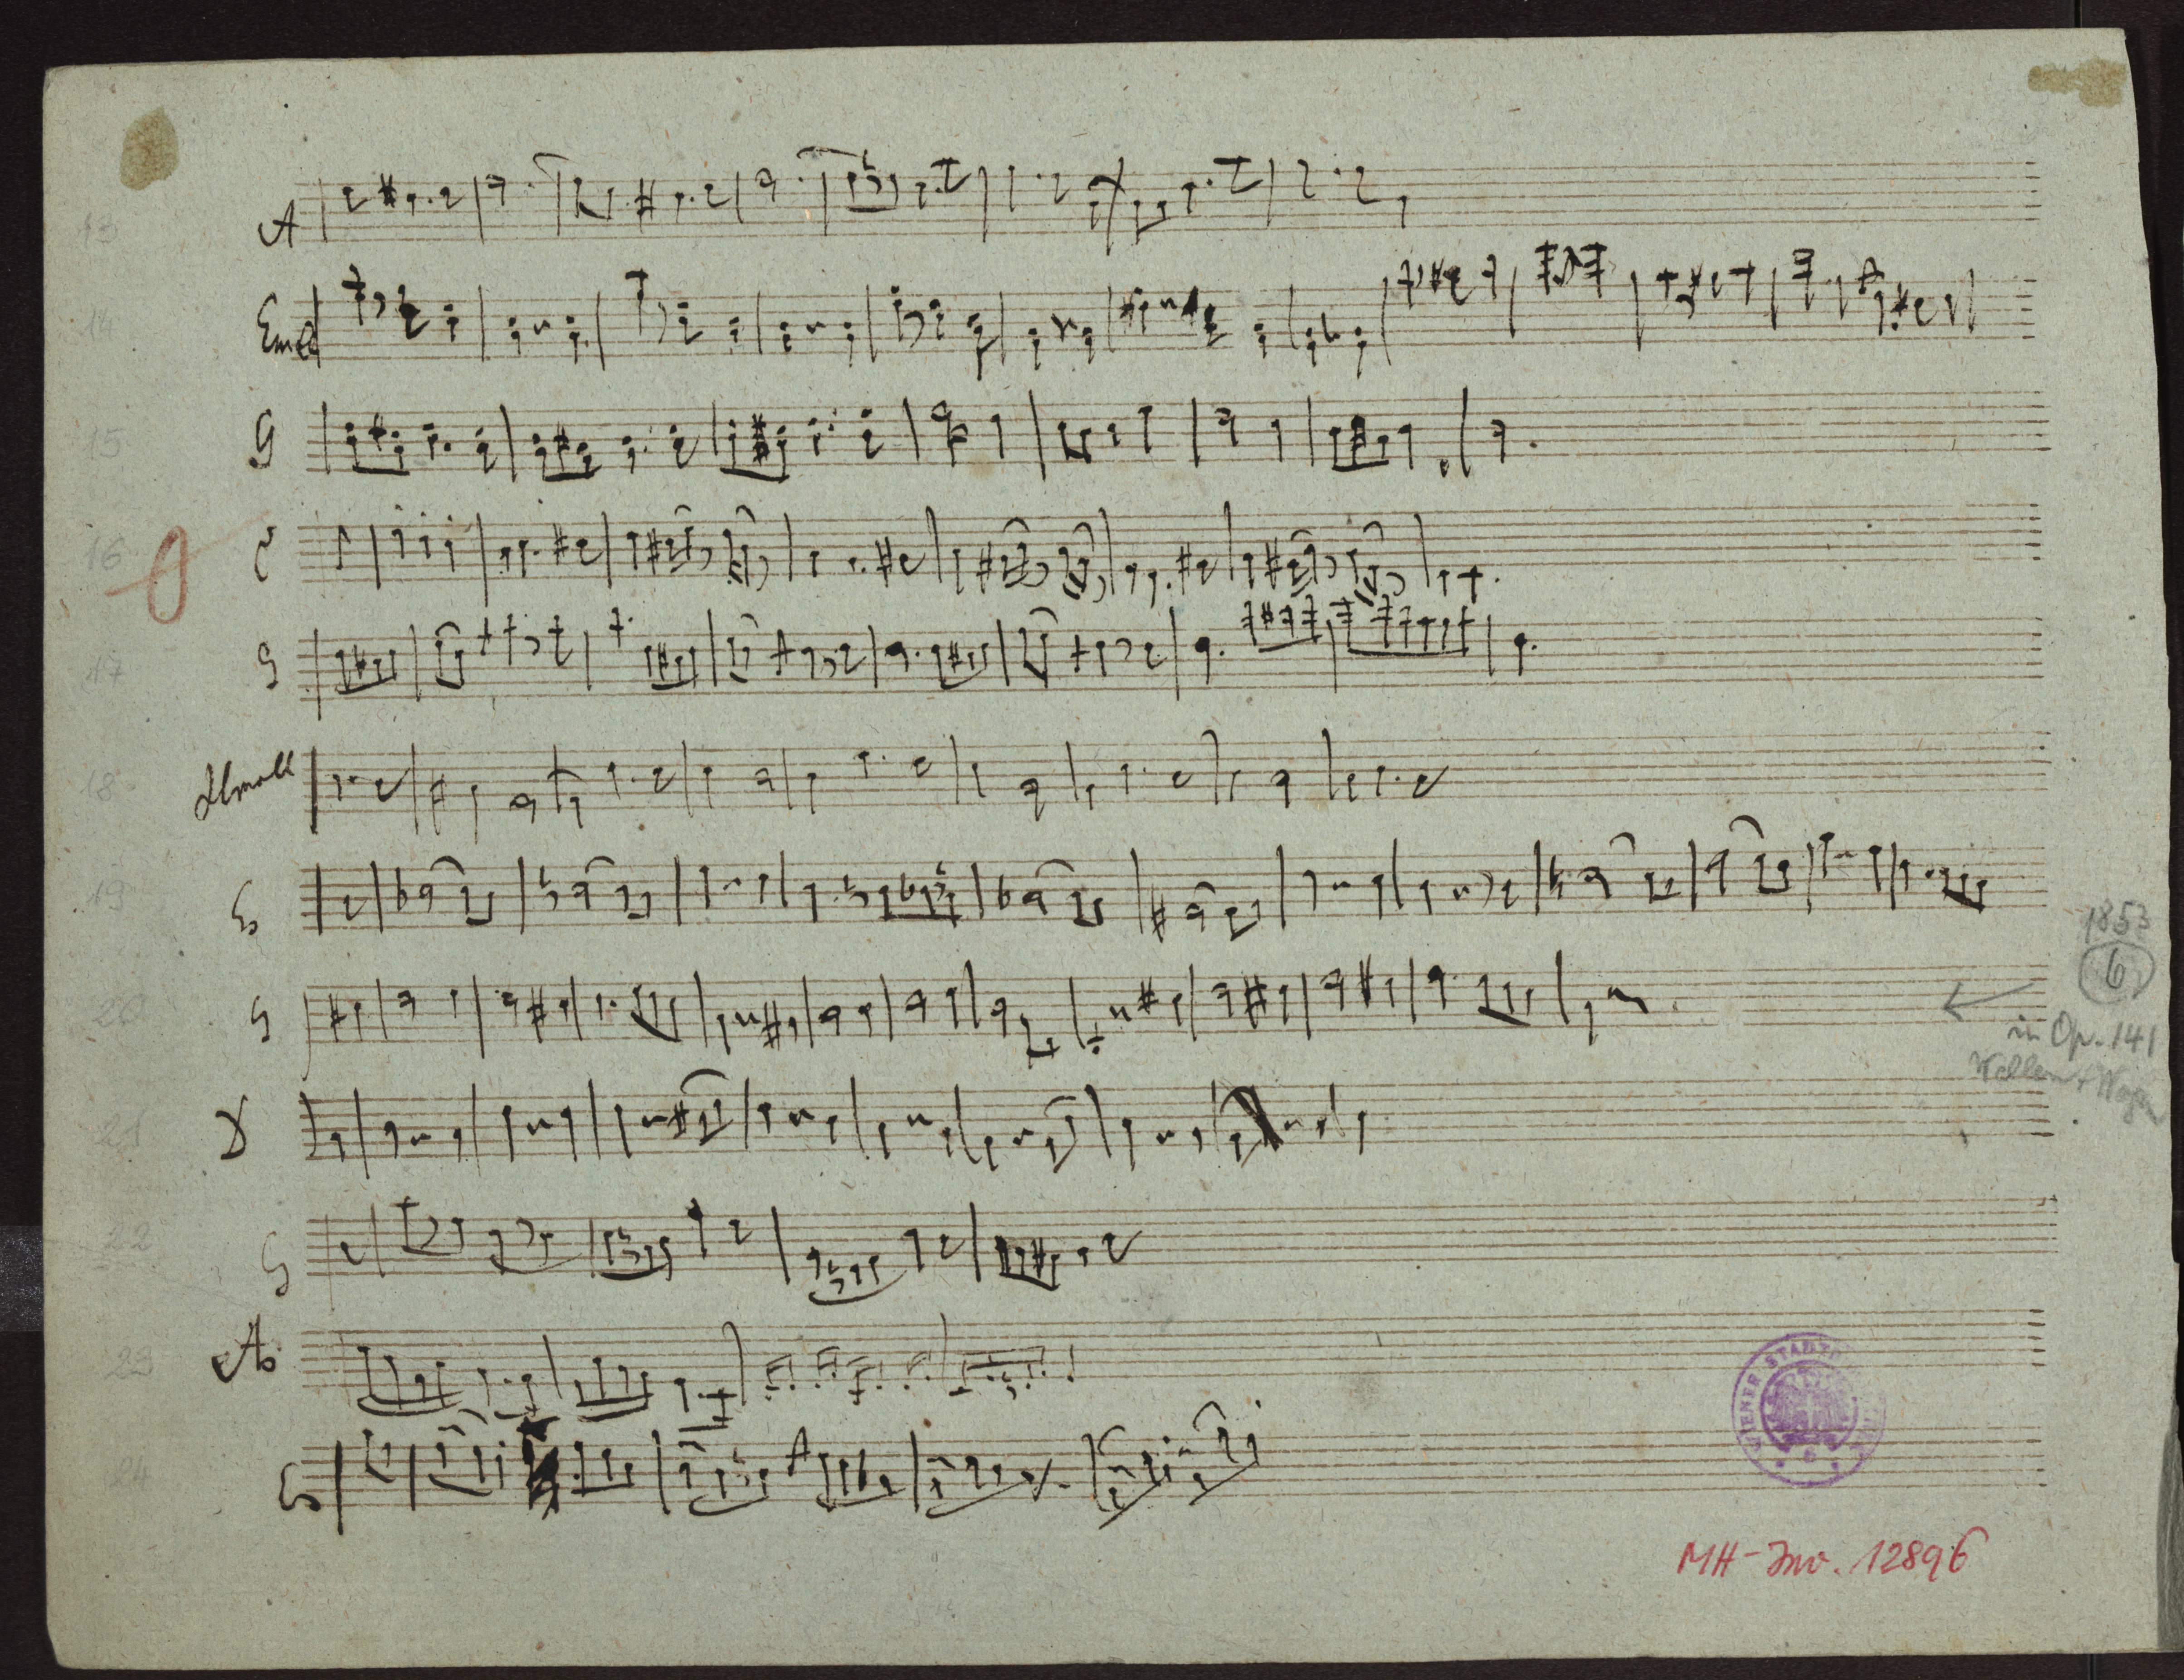 13
A
14
Emoll
15
G
16
C
17
G
18
Hmoll
19
Es
1853
6
20
G
in Op. 141
21
D
22
G
23
As
24
Es
WIENER STADT
MH-Inv. 12896